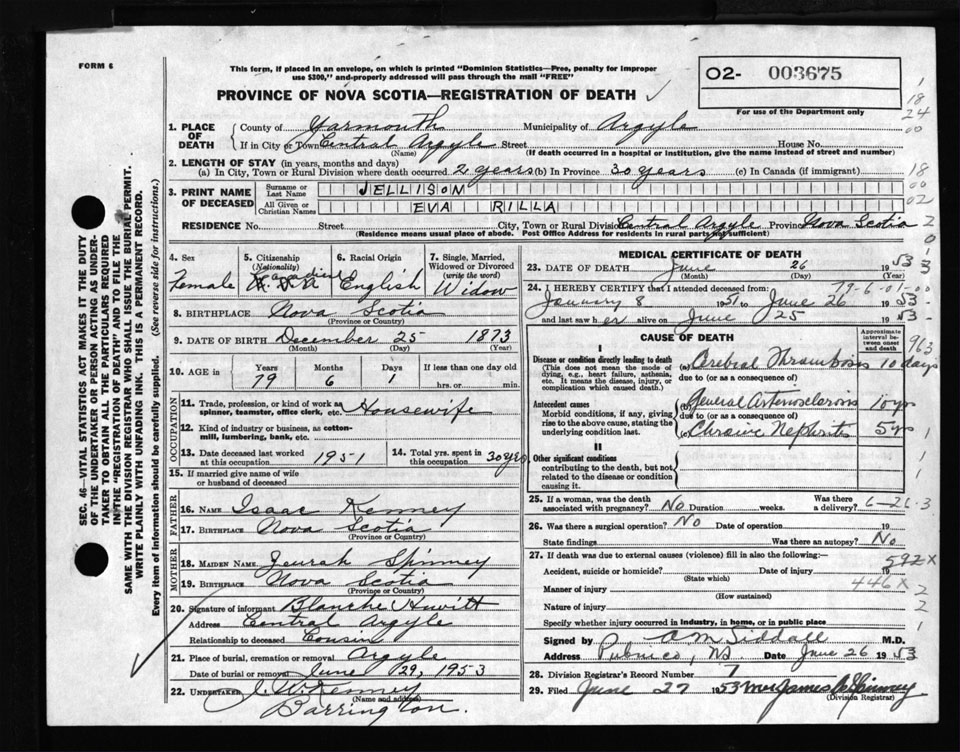 FORM 6
This form, if placed in an envelope, on which is printed "Dominion Statistics—Free, penalty for improper
use $300," and properly addressed will pass through the mail "FREE"
PROVINCE OF NOVA SCOTIA—REGISTRATION OF DEATH
O2- 003675
For use of the Department only
1. PLACE OF DEATH
County of Yarmouth Municipality of Argyle
If in City or Town Central Argyle Street House No.
(Name) (If death occurred in a hospital or institution, give the name instead of street and number)
2. LENGTH OF STAY (in years, months and days)
(a) In City, Town or Rural Division where death occurred 2 years (b) In Province 30 years (c) In Canada (if immigrant)
3. PRINT NAME OF DECEASED
Surname or Last Name JELLISON
All Given or Christian Names EVA RILLA
RESIDENCE No. Street City, Town or Rural Division Central Argyle Province Nova Scotia
(Residence means usual place of abode. Post Office Address for residents in rural parts not sufficient)
4. Sex Female
5. Citizenship (Nationality) Canadian
6. Racial Origin English
7. Single, Married, Widowed or Divorced (write the word) Widow
8. BIRTHPLACE Nova Scotia
(Province or Country)
9. DATE OF BIRTH December 25 1873
(Month) (Day) (Year)
10. AGE in Years 79 Months 6 Days 1 If less than one day old hrs. or min.
OCCUPATION
11. Trade, profession, or kind of work as spinner, teamster, office clerk, etc. Housewife
12. Kind of industry or business, as cotton-mill, lumbering, bank, etc.
13. Date deceased last worked at this occupation 1951
14. Total yrs. spent in this occupation 30 yrs.
15. If married give name of wife or husband of deceased
FATHER
16. NAME Isaac Kenney
17. BIRTHPLACE Nova Scotia
(Province or Country)
MOTHER
18. MAIDEN NAME Spinney
19. BIRTHPLACE Nova Scotia
(Province or Country)
20. Signature of informant Blanche Hewitt
Address Central Argyle
Relationship to deceased Cousin
21. Place of burial, cremation or removal Argyle
Date of burial or removal June 29, 1953
22. UNDERTAKER J. W. Kenney
(Name and address)
Barrington.
MEDICAL CERTIFICATE OF DEATH
23. DATE OF DEATH June 26 1953
(Month) (Day) (Year)
24. I HEREBY CERTIFY that I attended deceased from: 79-6-01-00
January 8 1951 to June 26 1953
and last saw her alive on June 25 1953
CAUSE OF DEATH
Approximate interval between onset and death
963
I
Disease or condition directly leading to death
(This does not mean the mode of dying, e.g., heart failure, asthenia, etc. It means the disease, injury, or complication which caused death.)
(a) Cerebral Thrombosis 10 days
due to (or as a consequence of)
Antecedent causes
Morbid conditions, if any, giving rise to the above cause, stating the underlying condition last.
(b) General Arteriosclerosis 10 yrs
due to (or as a consequence of)
(c) Chronic Nephritis 5 yrs 1
II
Other significant conditions
contributing to the death, but not related to the disease or condition causing it.
25. If a woman, was the death associated with pregnancy? No Duration weeks. Was there a delivery? 6-26-3
26. Was there a surgical operation? No Date of operation 19
State findings Was there an autopsy? No
27. If death was due to external causes (violence) fill in also the following: 592X
Accident, suicide or homicide? Date of injury 19
(State which)
Manner of injury 446X
(How sustained)
Nature of injury
Specify whether injury occurred in industry, in home, or in public place
Signed by A M Siddall M.D.
Address Pubnico, NS Date June 26 1953
28. Division Registrar's Record Number 7
29. Filed June 27 1953 Mrs James Spinney
(Division Registrar)
SEC. 46—VITAL STATISTICS ACT MAKES IT THE DUTY
OF THE UNDERTAKER OR PERSON ACTING AS UNDER-
TAKER TO OBTAIN ALL THE PARTICULARS REQUIRED
IN THE "REGISTRATION OF DEATH" AND TO FILE THE
SAME WITH THE DIVISION REGISTRAR WHO SHALL ISSUE THE BURIAL PERMIT.
WRITE PLAINLY WITH UNFADING INK. THIS IS A PERMANENT RECORD.
Every item of information should be carefully supplied. (See reverse side for instructions.)